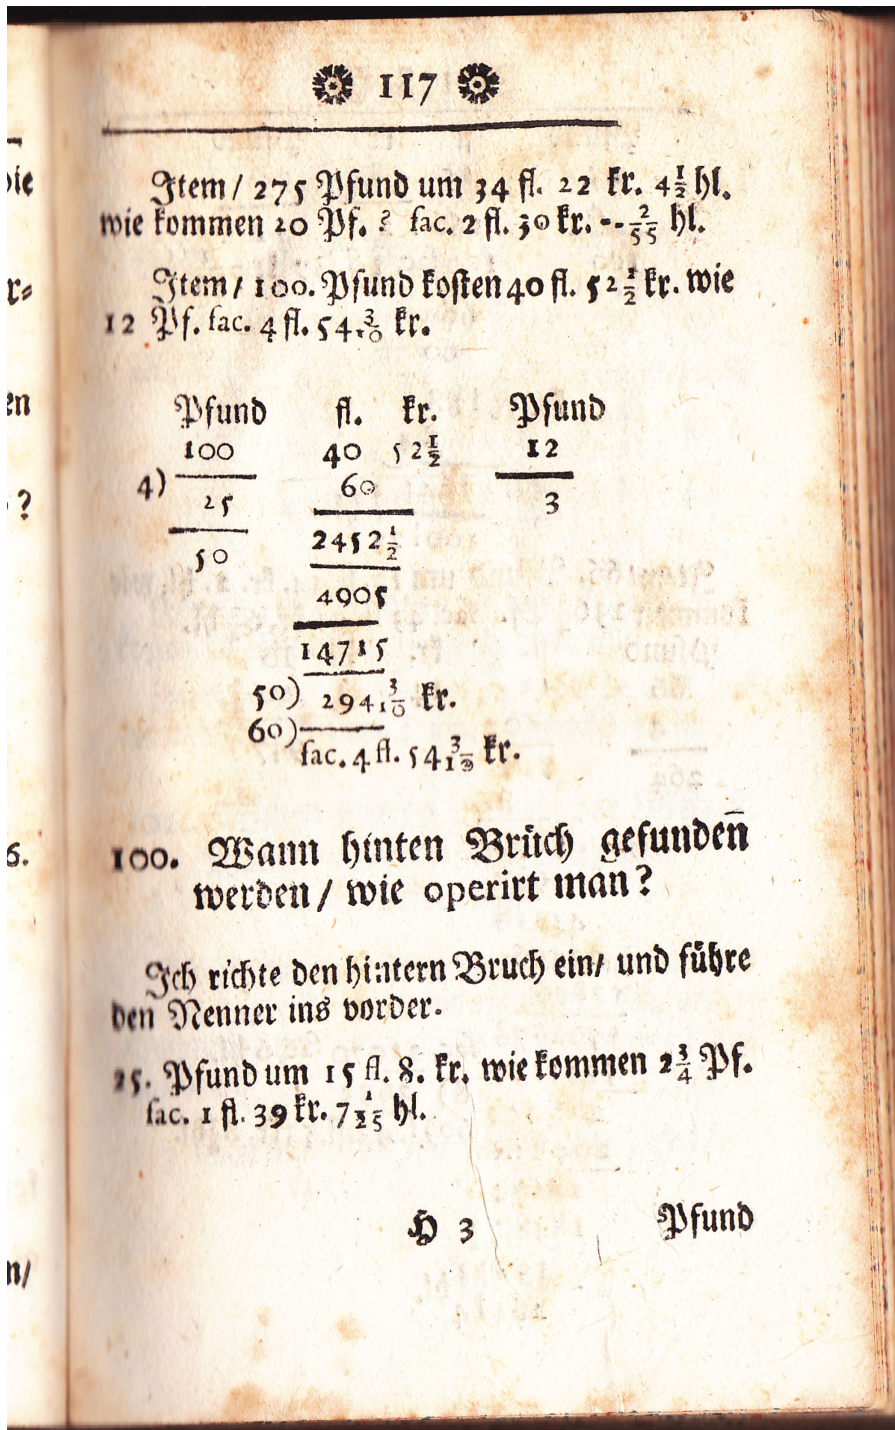 117
Item / 275 Pfund um 34 fl. 22 kr. 4 1/2 hl.
wie kommen 20 Pf. ? fac. 2 fl. 30 kr. -- 2/55 hl.
Item / 100. Pfund kosten 40 fl. 52 1/2 kr. wie
12 Pf. fac. 4 fl. 54. 3/10 kr.
Pfund fl. kr. Pfund
100 40 52 1/2 12
4) 25 60 3
50 2452 1/2
4905
14715
50) 294 3/10 kr.
60)
fac. 4 fl. 54 3/10 kr.
100. Wann hinten Brüch gefundeñ
werden / wie operirt man?
Ich richte den hintern Bruch ein / und führe
den Nenner ins vorder.
25. Pfund um 15 fl. 8. kr. wie kommen 2 3/4 Pf.
fac. 1 fl. 39 kr. 7 1/25 hl.
H 3 Pfund